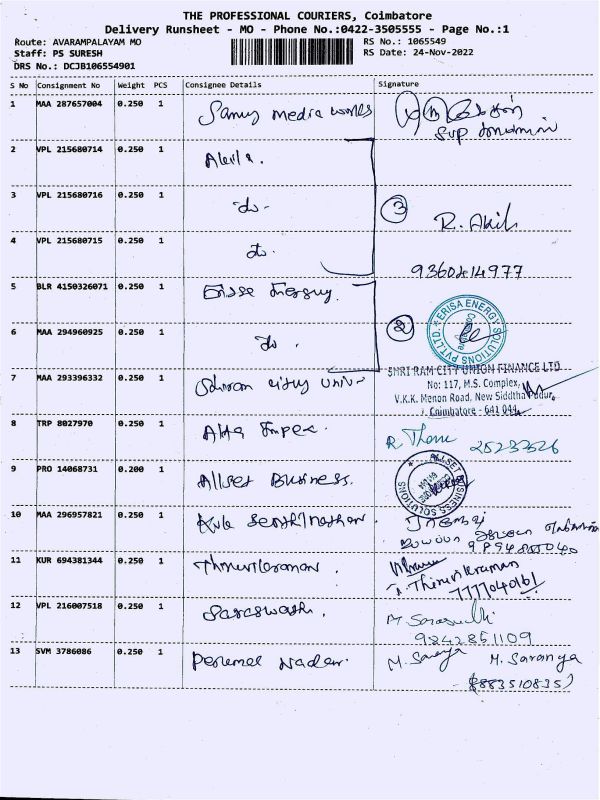 THE PROFESSIONAL COURIERS, Coimbatore
Delivery Runsheet - MO - Phone No.:0422-3505555 - Page No.:1
Route: AVARAMPALAYAM MO
RS No.: 1065549
Staff: PS SURESH
RS Date: 24-Nov-2022
DRS No.: DCJB106554901
S No Consignment No Weight PCS Consignee Details Signature
1 MAA 287657004 0.250 1 media works
2 VPL 215680714 0.250 1
3 VPL 215680716 0.250 1 do-
3
R. Akil
4 VPL 215680715 0.250 1 do.
9360414977
5 BLR 4150326071 0.250 1
ERISA ENERGY SOLUTIONS PVT.LTD.
Coimbatore
6 MAA 294960925 0.250 1 do.
2
SHRI RAM CITY UNION FINANCE LTD
7 MAA 293396332 0.250 1 city
No: 117, M.S. Complex,
V.K.K. Menon Road, New Siddhapudur,
Coimbatore - 641 044
8 TRP 8027970 0.250 1 Alfa Impex. 2523326
9 PRO 14068731 0.200 1 Allset Business.
ALLSET BUSINESS SOLUTIONS
10 MAA 296957821 0.250 1 Kula Senthilnathan.
11 KUR 694381344 0.250 1 Thiruvikraman.
Thiruvikraman
7777040161
12 VPL 216007518 0.250 1 Saraswathi.
9842851109
13 SVM 3786086 0.250 1 Perumal Nadar. M. Saranya M. Saranya
(8883510835)